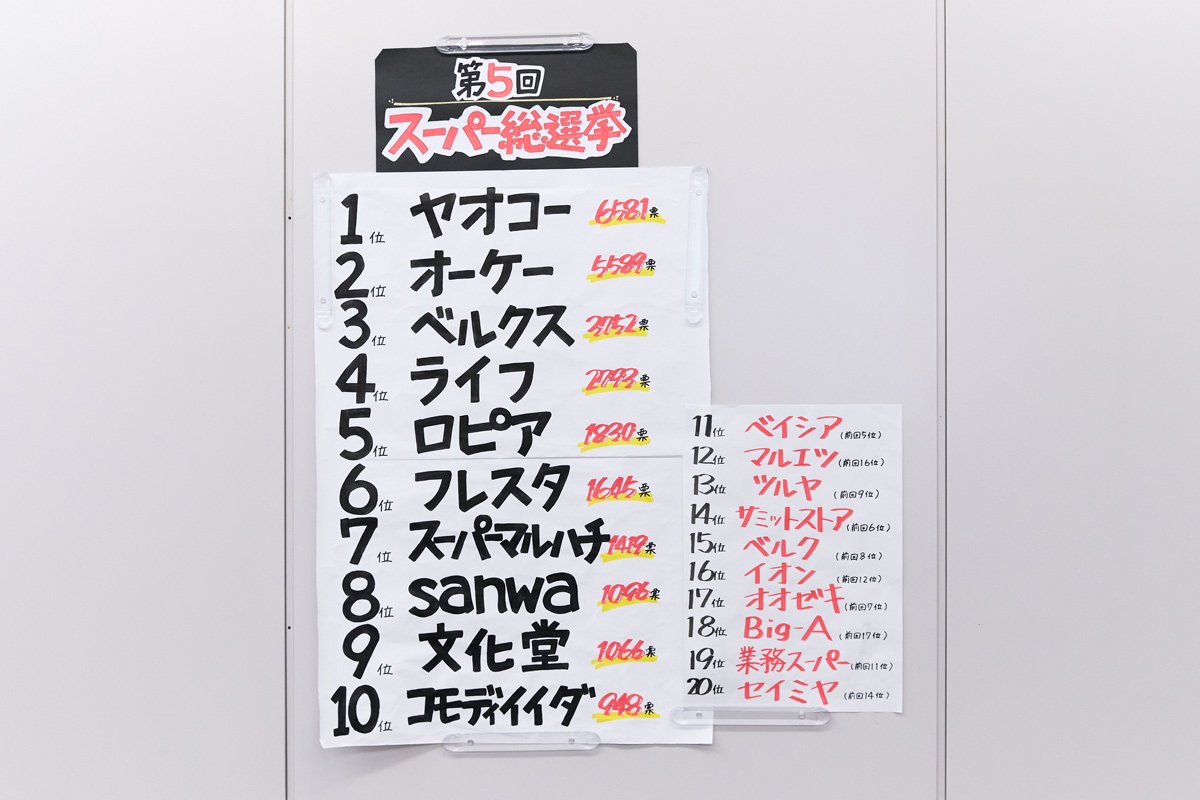 第5回
スーパー総選挙
1位 ヤオコー 6581票
2位 オーケー 5589票
3位 ベルクス 3752票
4位 ライフ 2793票
5位 ロピア 1830票
6位 フレスタ 1645票
7位 スーパーマルハチ 1419票
8位 sanwa 1096票
9位 文化堂 1066票
10位 コモディイイダ 948票
11位 ベイシア (前回5位)
12位 マルエツ (前回16位)
13位 ツルヤ (前回9位)
14位 サミットストア (前回6位)
15位 ベルク (前回8位)
16位 イオン (前回12位)
17位 オオゼキ (前回7位)
18位 Big-A (前回17位)
19位 業務スーパー (前回11位)
20位 セイミヤ (前回14位)